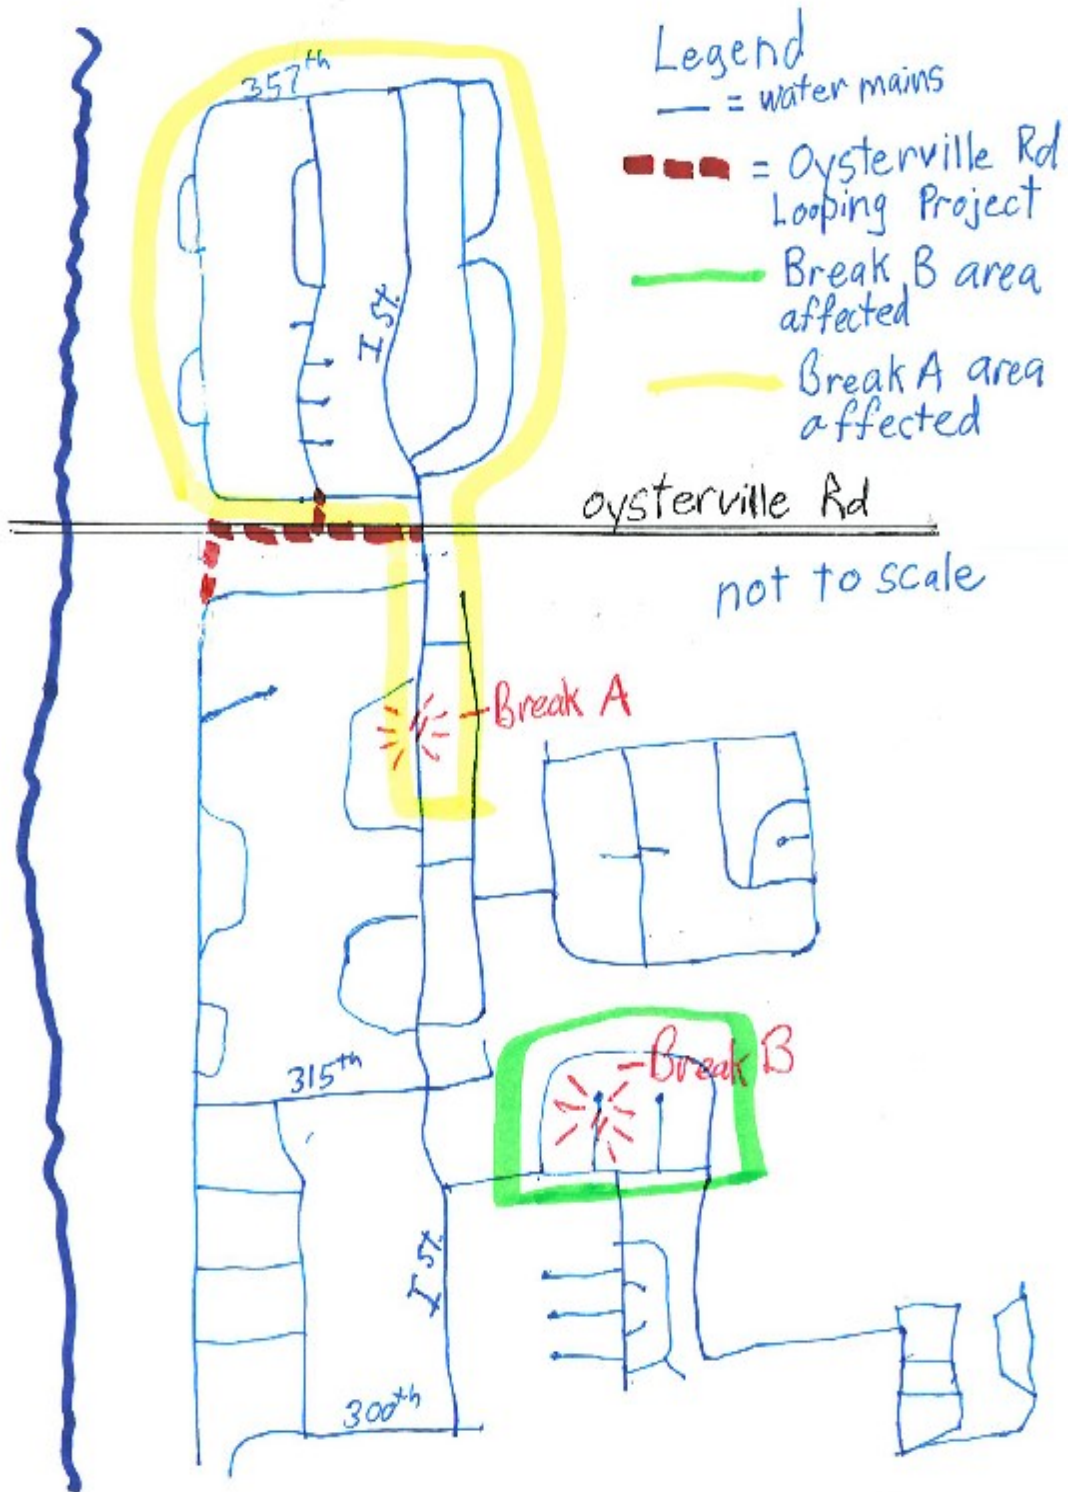 Legend
— = water mains
357th
= Oysterville Rd
Looping Project
Break B area
affected
I St.
Break A area
affected
oysterville Rd
not to scale
Break A
315th
Break B
I St.
300th